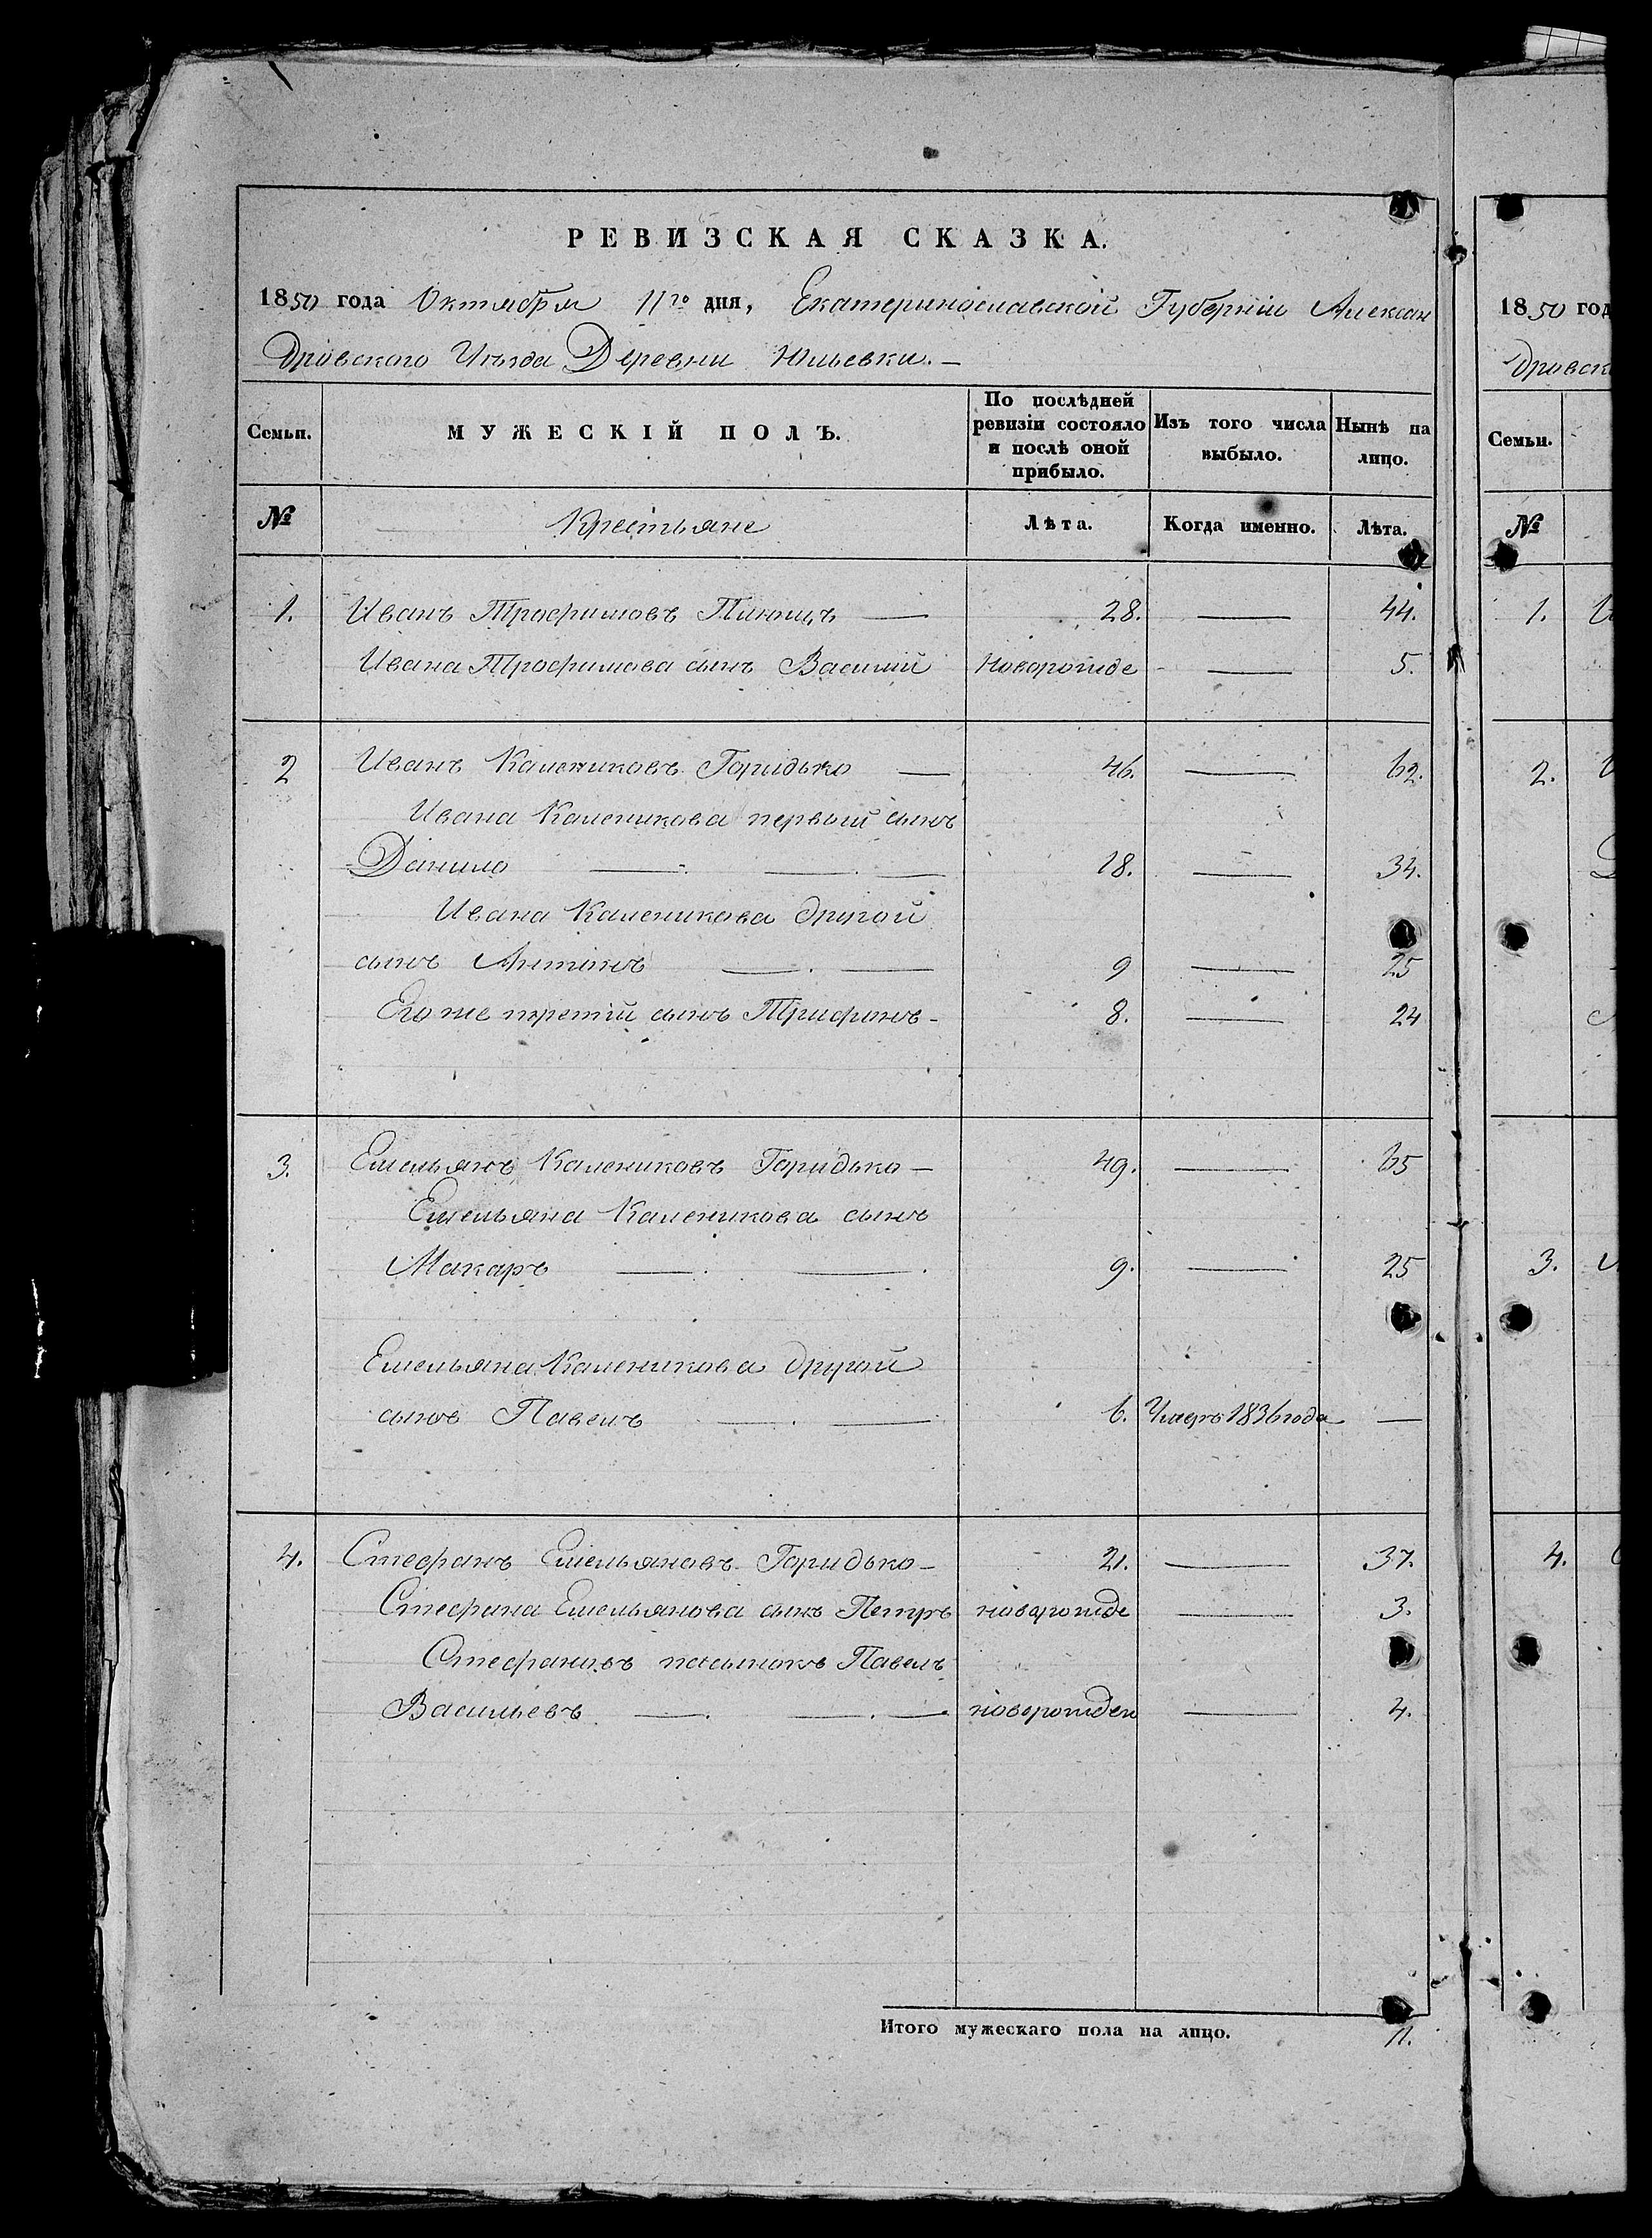 РЕВИЗСКАЯ СКАЗКА.
1850 года Октября 11го дня, Екатеринославской Губерніи Алексан
дровского Уѣзда Деревни Юльевки. —
Семьи. МУЖЕСКІЙ ПОЛЪ. По послѣдней ревизіи состояло и послѣ оной прибыло. Изъ того числа выбыло. Нынѣ на лицо.
№ Крестьяне Лѣта. Когда именно. Лѣта.
1. Иванъ Трофимовъ — 28. — 44.
Ивана Трофимова сынъ Василий новорожде — 5.
2 Иванъ Калениковъ Горидько — 46. — 62.
Ивана Каленикова первый сынъ
Данило — 18. — 34.
Ивана Каленикова другой
сынъ Антонъ — 9 — 25
Его же третій сынъ Трифонъ - 8. — 24
3. Емельянъ Калениковъ Горидько — 49. — 65
Емельяна Каленикова сынъ
Макаръ — 9. — 25
Емельяна Каленикова другой
сынъ Павелъ — 6. Умеръ 1836 года —
4. Стефанъ Емельяновъ Горидько — 21. — 37.
Стефана Емельянова сынъ Петръ новорожде — 3.
Стефановъ пасынокъ Павелъ
Васильевъ — новорожден — 4.
Итого мужескаго пола на лицо. 11.
1850 год
дровск
Семьи.
№
1.
2.
3.
4.